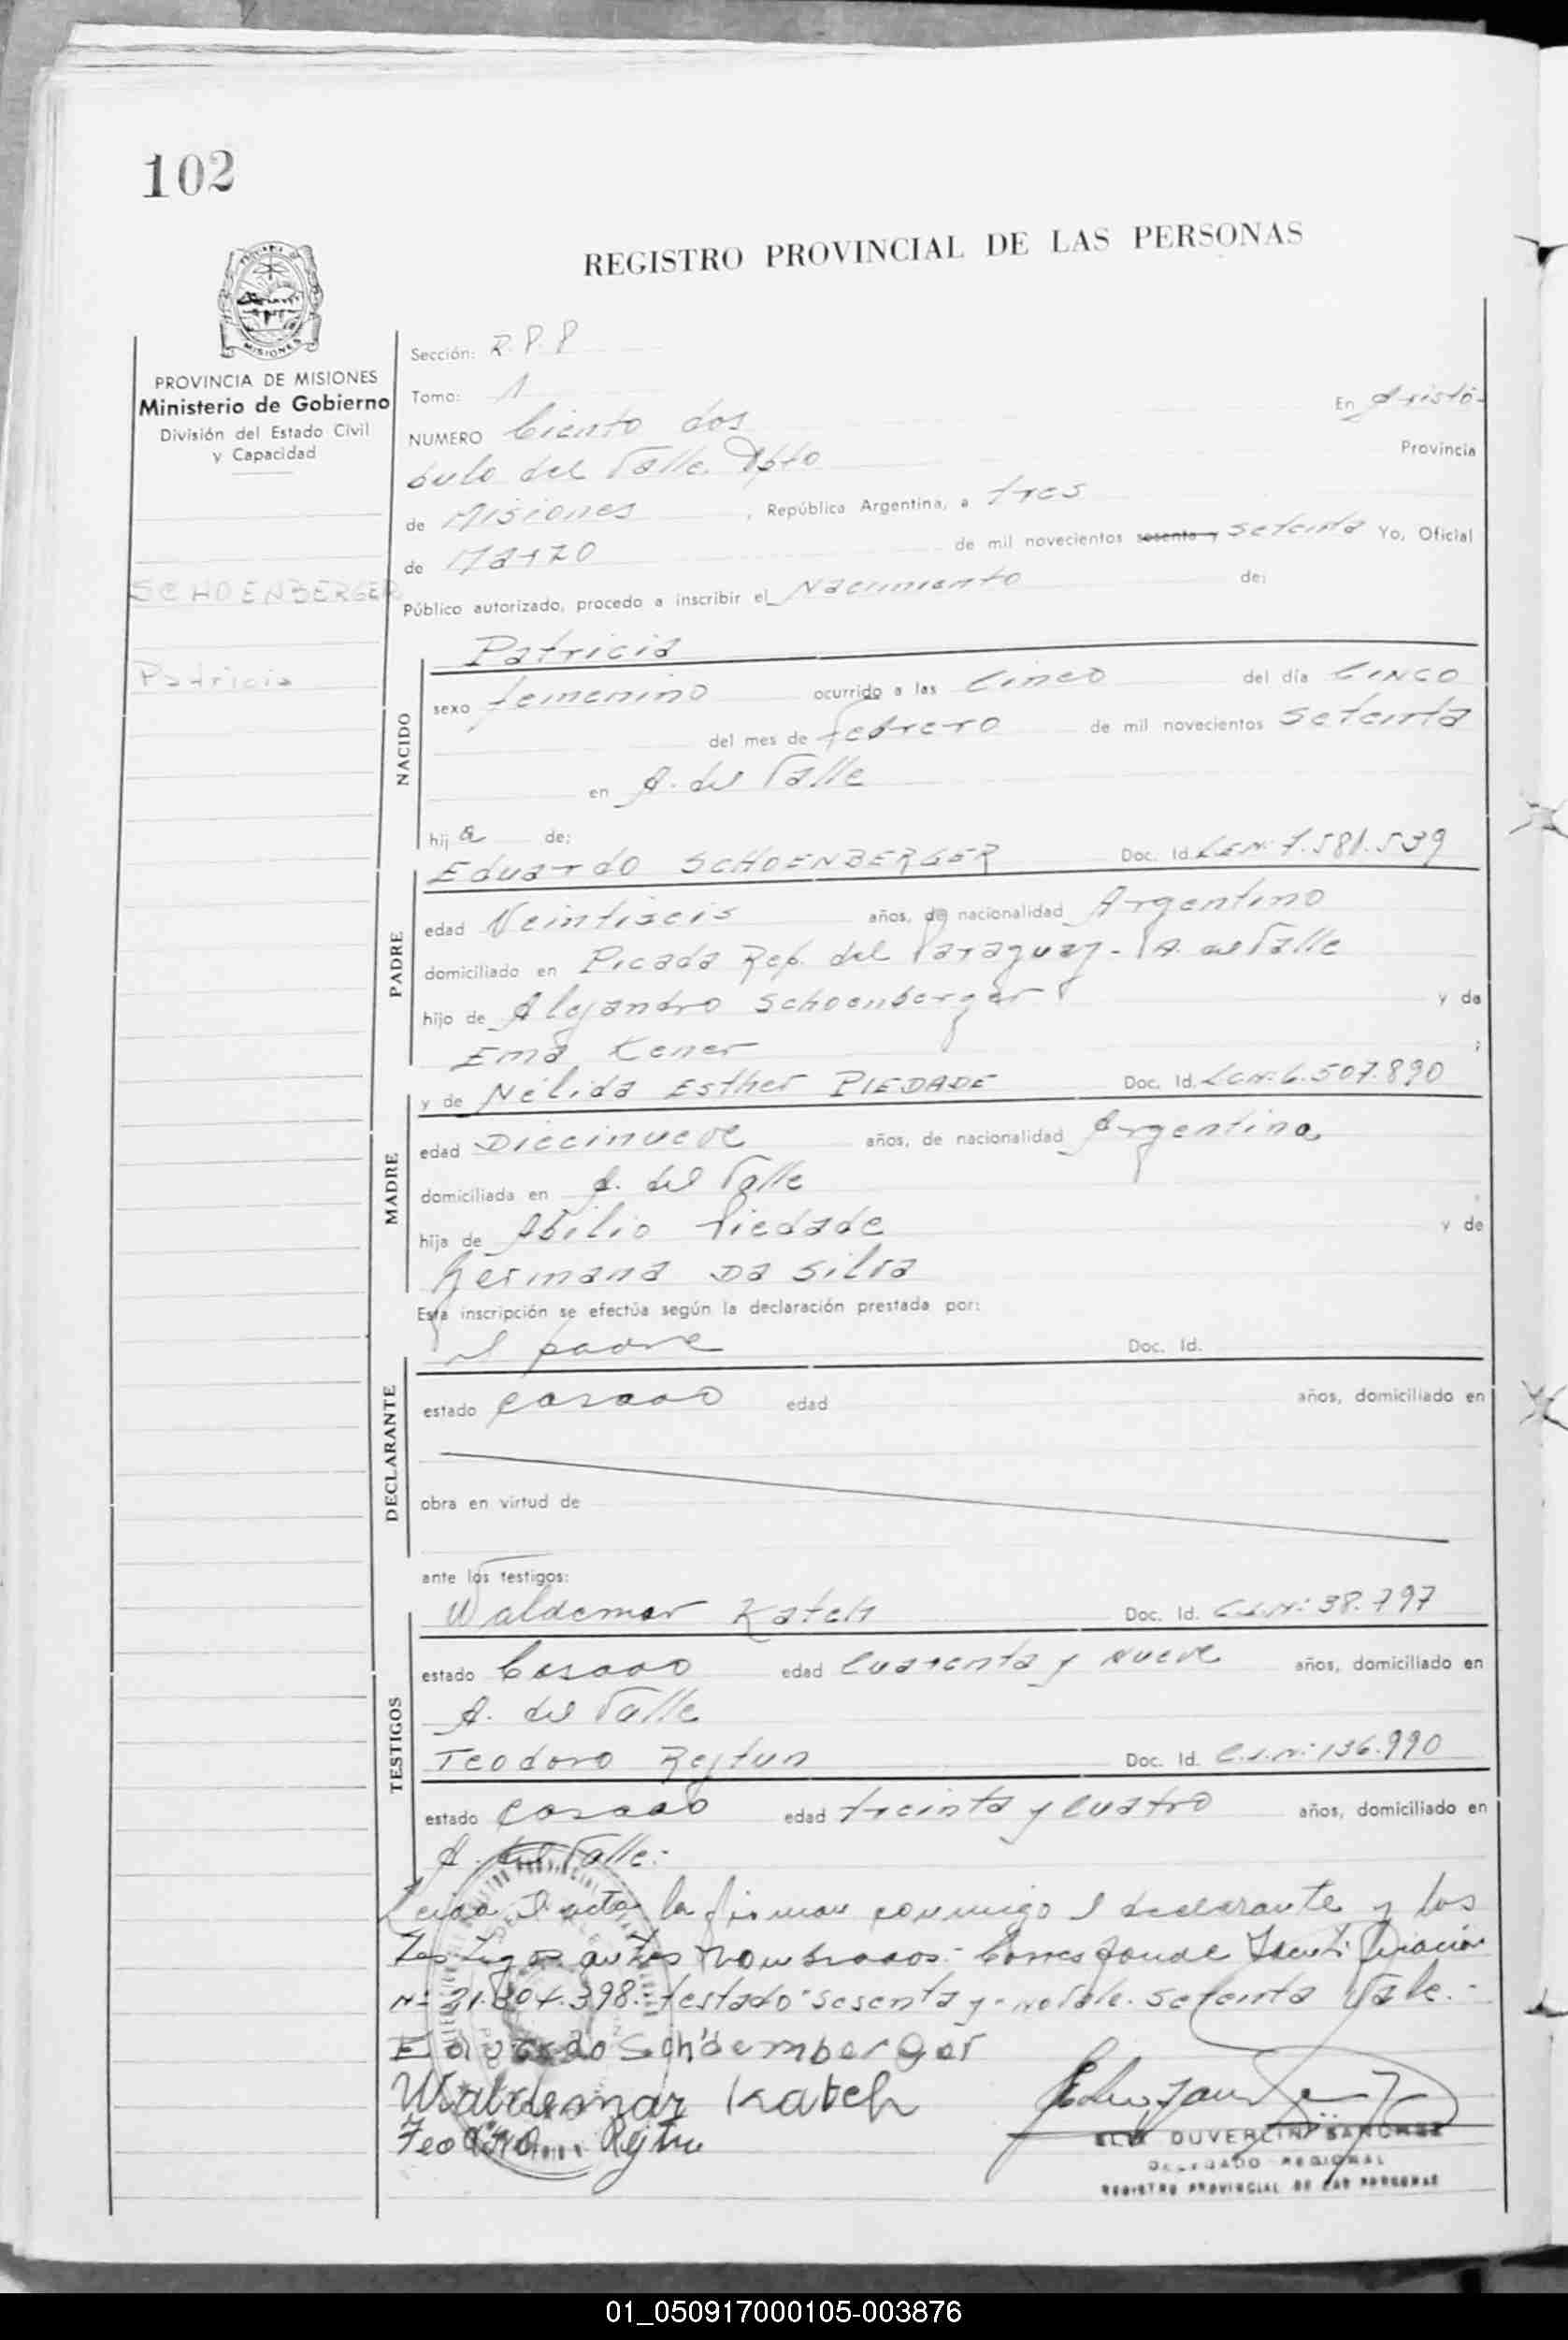 102
REGISTRO PROVINCIAL DE LAS PERSONAS
MISIONES
PROVINCIA DE MISIONES
Ministerio de Gobierno
División del Estado Civil
y Capacidad
SCHOENBERGER
Patricia
Sección: R.P.P
Tomo: 1
En Aristó-
NUMERO Ciento dos
bulo del Valle Dpto
Provincia
de Misiones, República Argentina, a tres
de Marzo de mil novecientos sesenta y setenta Yo, Oficial
Público autorizado, procedo a inscribir el Nacimiento de:
NACIDO
Patricia
sexo femenino ocurrido a las Cinco del día CINCO
del mes de febrero de mil novecientos setenta
en A. del Valle
hija de:
PADRE
Eduardo SCHOENBERGER Doc. Id. L.E.N: 7.581.539
edad Veintiseis años, de nacionalidad Argentino
domiciliado en Picada Rep. del Paraguay - A. del Valle
hijo de Alejandro Schoenberger y de
Ema Kener ;
MADRE
y de Nélida Esther PIEDADE Doc. Id. L.C.N: 6.507.890
edad Diecinueve años, de nacionalidad Argentina
domiciliada en A. del Valle
hija de Abilio Piedade y de
Germana Da Silva
Esta inscripción se efectúa según la declaración prestada por:
DECLARANTE
el padre Doc. Id.
estado casado edad años, domiciliado en
obra en virtud de
ante los testigos:
TESTIGOS
Waldemar Katch Doc. Id. C.I.N: 38.797
estado Casado edad Cuarenta y nueve años, domiciliado en
A. del Valle
Teodoro Rejtun Doc. Id. C.I.N: 136.990
estado casado edad treinta y cuatro años, domiciliado en
A. del Valle.-
Leída el acta la firman conmigo el declarante y los
testigos antes nombrados.- Corresponde Identificación
N= 21.304.398. testado "sesenta y" no vale. setenta Vale.-
Eduardo Schöemberger
Waldemar Katch
Teodoro Rejtun
DUVERLIN SANCHEZ
DELEGADO REGIONAL
REGISTRO PROVINCIAL DE LAS PERSONAS
01_050917000105-003876